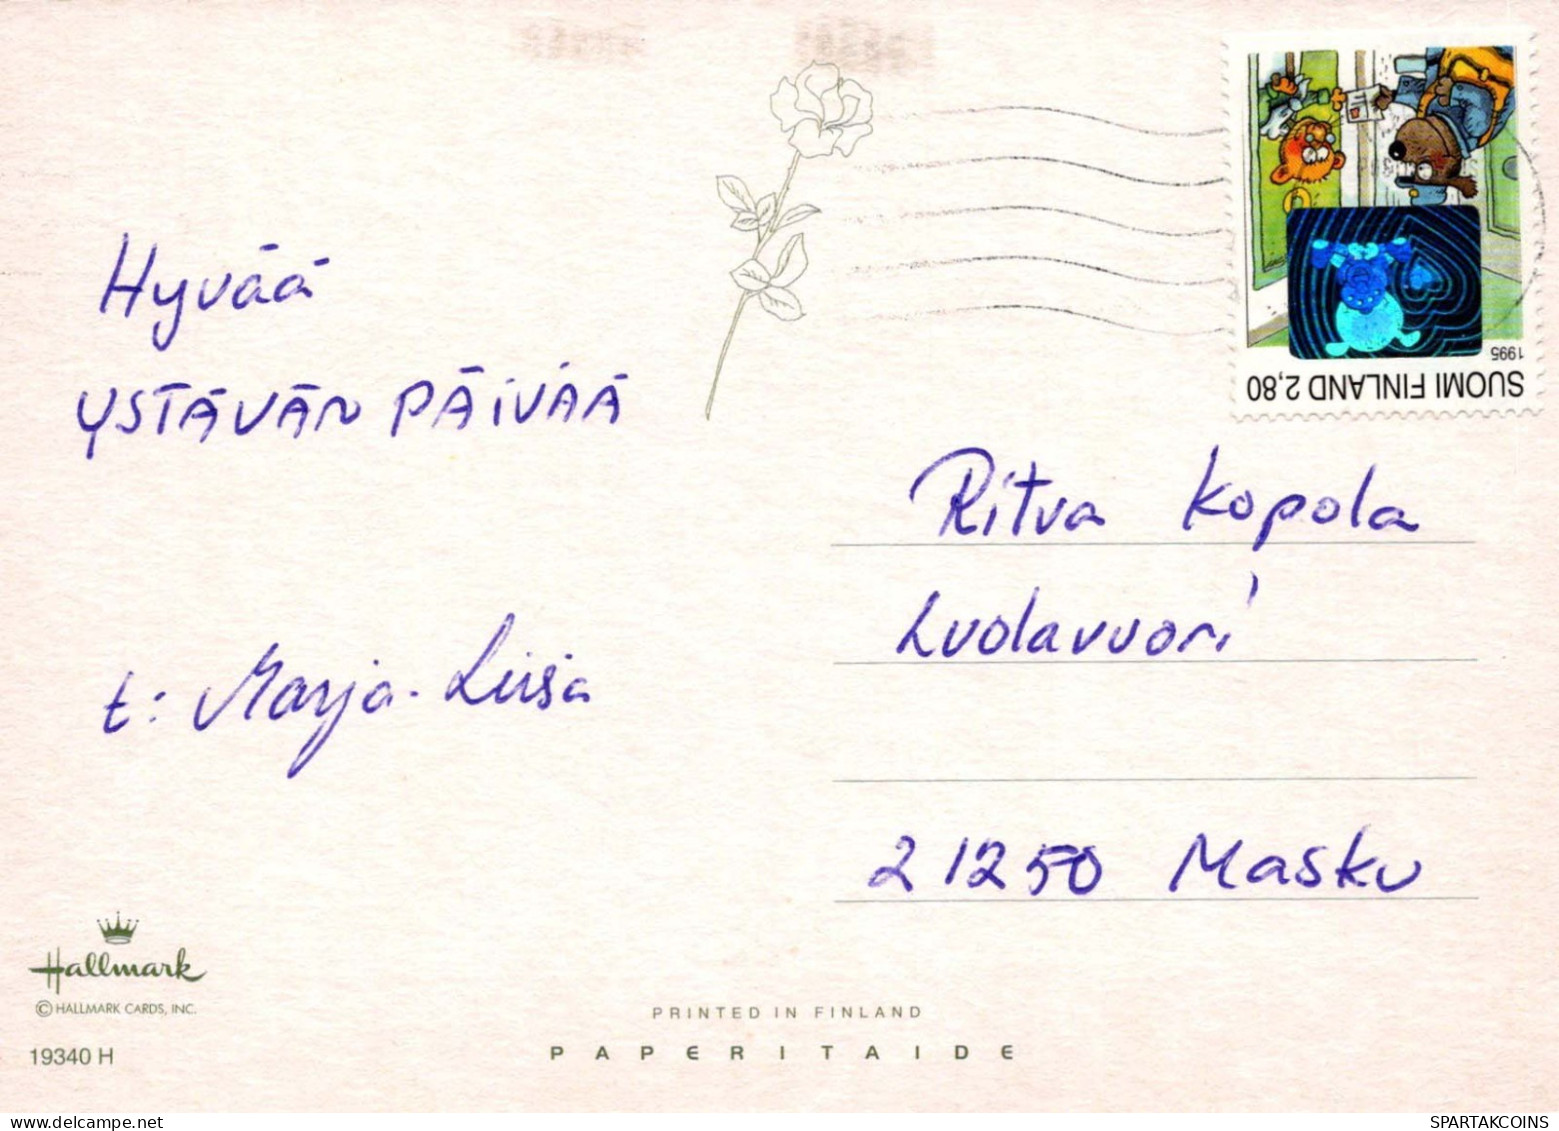 Hyvää
YSTÄVÄN PÄIVÄÄ
t: Marja-Liisa
1995
SUOMI FINLAND 2,80
Ritva Kopola
Luolavuori
21250 Masku
Hallmark
© HALLMARK CARDS, INC.
19340 H
PRINTED IN FINLAND
PAPERITAIDE
SPARTAKCOINS